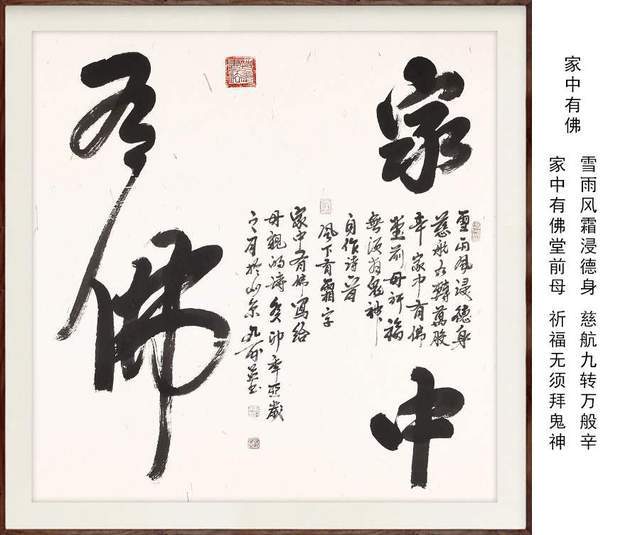 家中
有佛
雪雨風浸德身
慈航九轉萬般
辛家中有佛
堂前母祈福
無須拜鬼神
自作诗一首
風下有霜字
家中有佛寫给
母親的诗癸卯年亚歲
之月於山东九
家中有佛
雪雨风霜浸德身 慈航九转万般辛
家中有佛堂前母 祈福无须拜鬼神